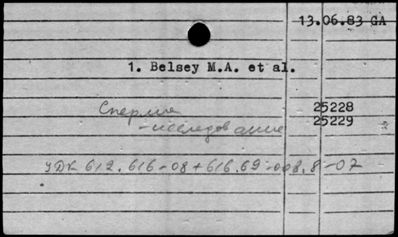 13.06.83 GA
1. Belsey M.A. et al.
Сперма 25228
-исследование 25229
УДК 612.616-08+616.69-008.8-07